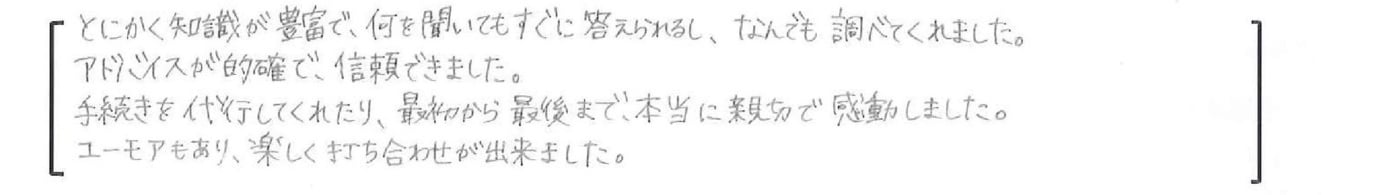 とにかく知識が豊富で、何を聞いてもすぐに答えられるし、なんでも調べてくれました。
アドバイスが的確で、信頼できました。
手続きを代行してくれたり、最初から最後まで、本当に親切で感動しました。
ユーモアもあり、楽しく打ち合わせが出来ました。